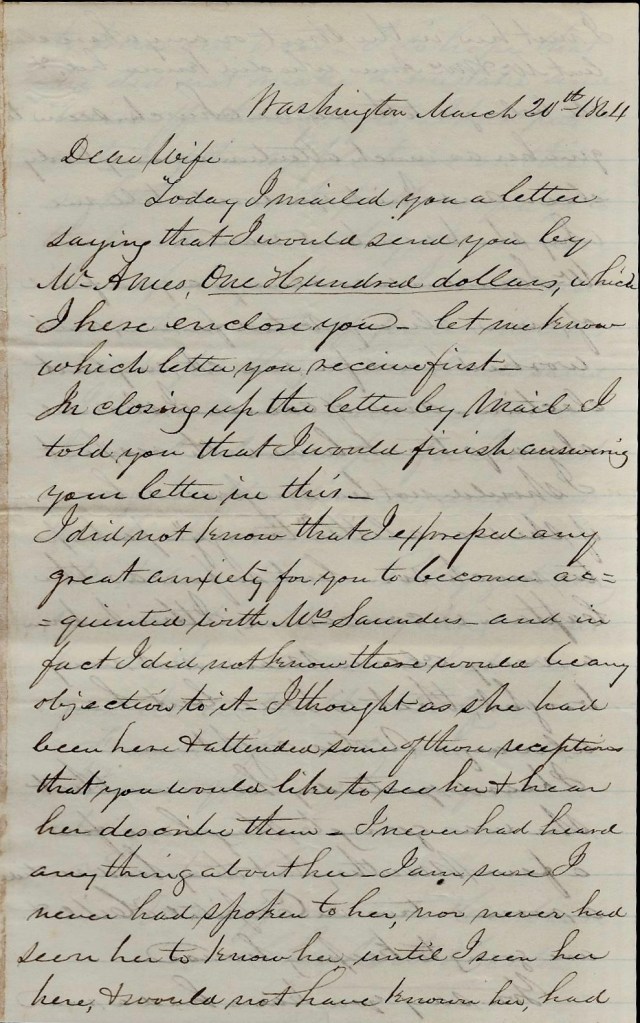 Washington March 20th 1864
Dear Wife
Today I mailed you a letter
saying that I would send you by
Mr Ames, One Hundred dollars, which
I here enclose you - let me know
which letter you receive first -
In closing up the letter by Mail I
told you that I would finish answering
your letter in this -
I did not know that I expressed any
great anxiety for you to become ac=
=quiented with Mrs Saunders - and in
fact I did not know there would be any
objection to it - I thought as she had
been here & attended some of those receptions
that you would like to see her & hear
her describe them - I never had heard
anything about her - I am sure I
never had spoken to her, nor never had
seen her to know her until I seen her
here, & would not have known her, had